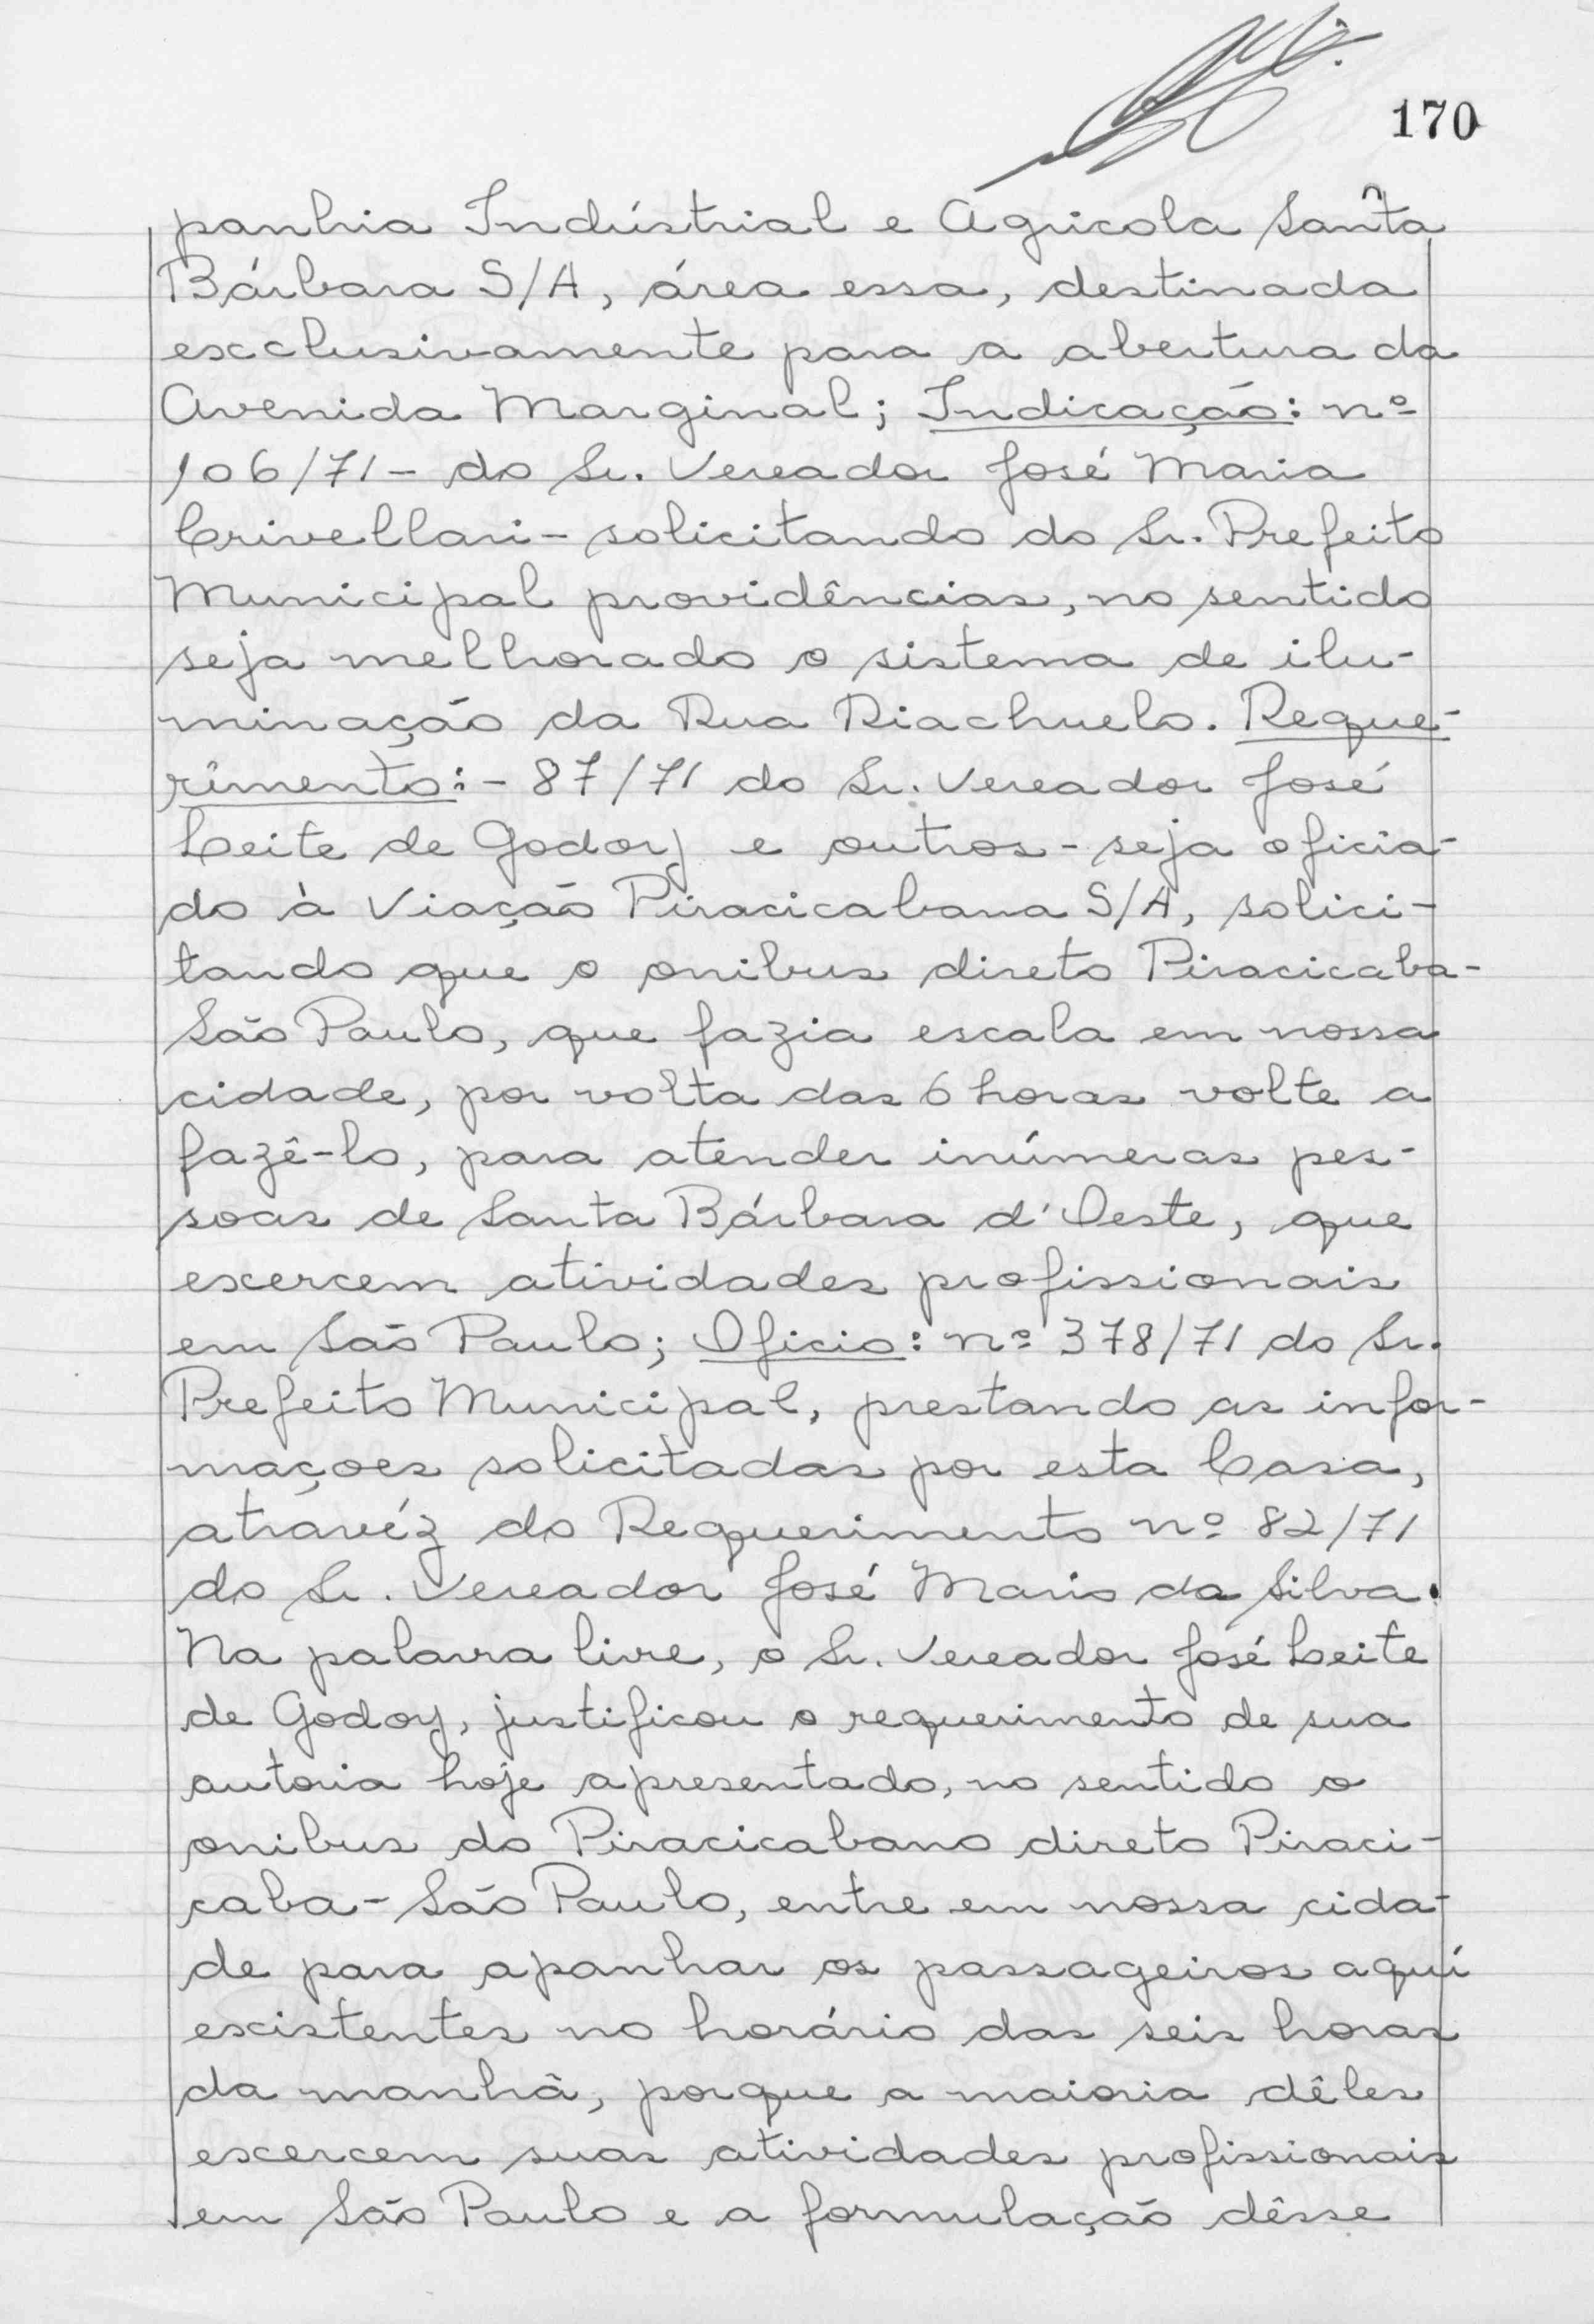 170
panhia Indústrial e Agricola Santa
Bárbara S/A, área essa, destinada
exclusivamente para a abertura da
Avenida Marginal; Indicação: nº
106/71 - do Sr. Vereador José Maria
Crivellari - solicitando do Sr. Prefeito
Municipal providências, no sentido
seja melhorado o sistema de ilu-
minação da Rua Riachuelo. Reque-
rimento: - 87/71 do Sr. Vereador José
Leite de Godoy e outros - seja oficia-
do à Viação Piracicabana S/A, solici-
tando que o onibus direto Piracicaba-
São Paulo, que fazia escala em nossa
cidade, por volta das 6 horas volte a
fazê-lo, para atender inúmeras pes-
soas de Santa Bárbara d'Oeste, que
exercem atividades profissionais
em São Paulo; Oficio: nº 378/71 do Sr.
Prefeito Municipal, prestando as infor-
maçoes solicitadas por esta Casa,
atravéz do Requerimento nº 82/71
do Sr. Vereador José Mario da Silva.
Na palavra livre, o Sr. Vereador José Leite
de Godoy, justificou o requerimento de sua
autoria hoje apresentado, no sentido o
onibus do Piracicabano direto Piraci-
caba - São Paulo, entre em nossa cida-
de para apanhar os passageiros aquí
existentes no horário das seis horas
da manhã, porque a maioria dêles
exercem suas atividades profissionais
em São Paulo e a formulação dêsse